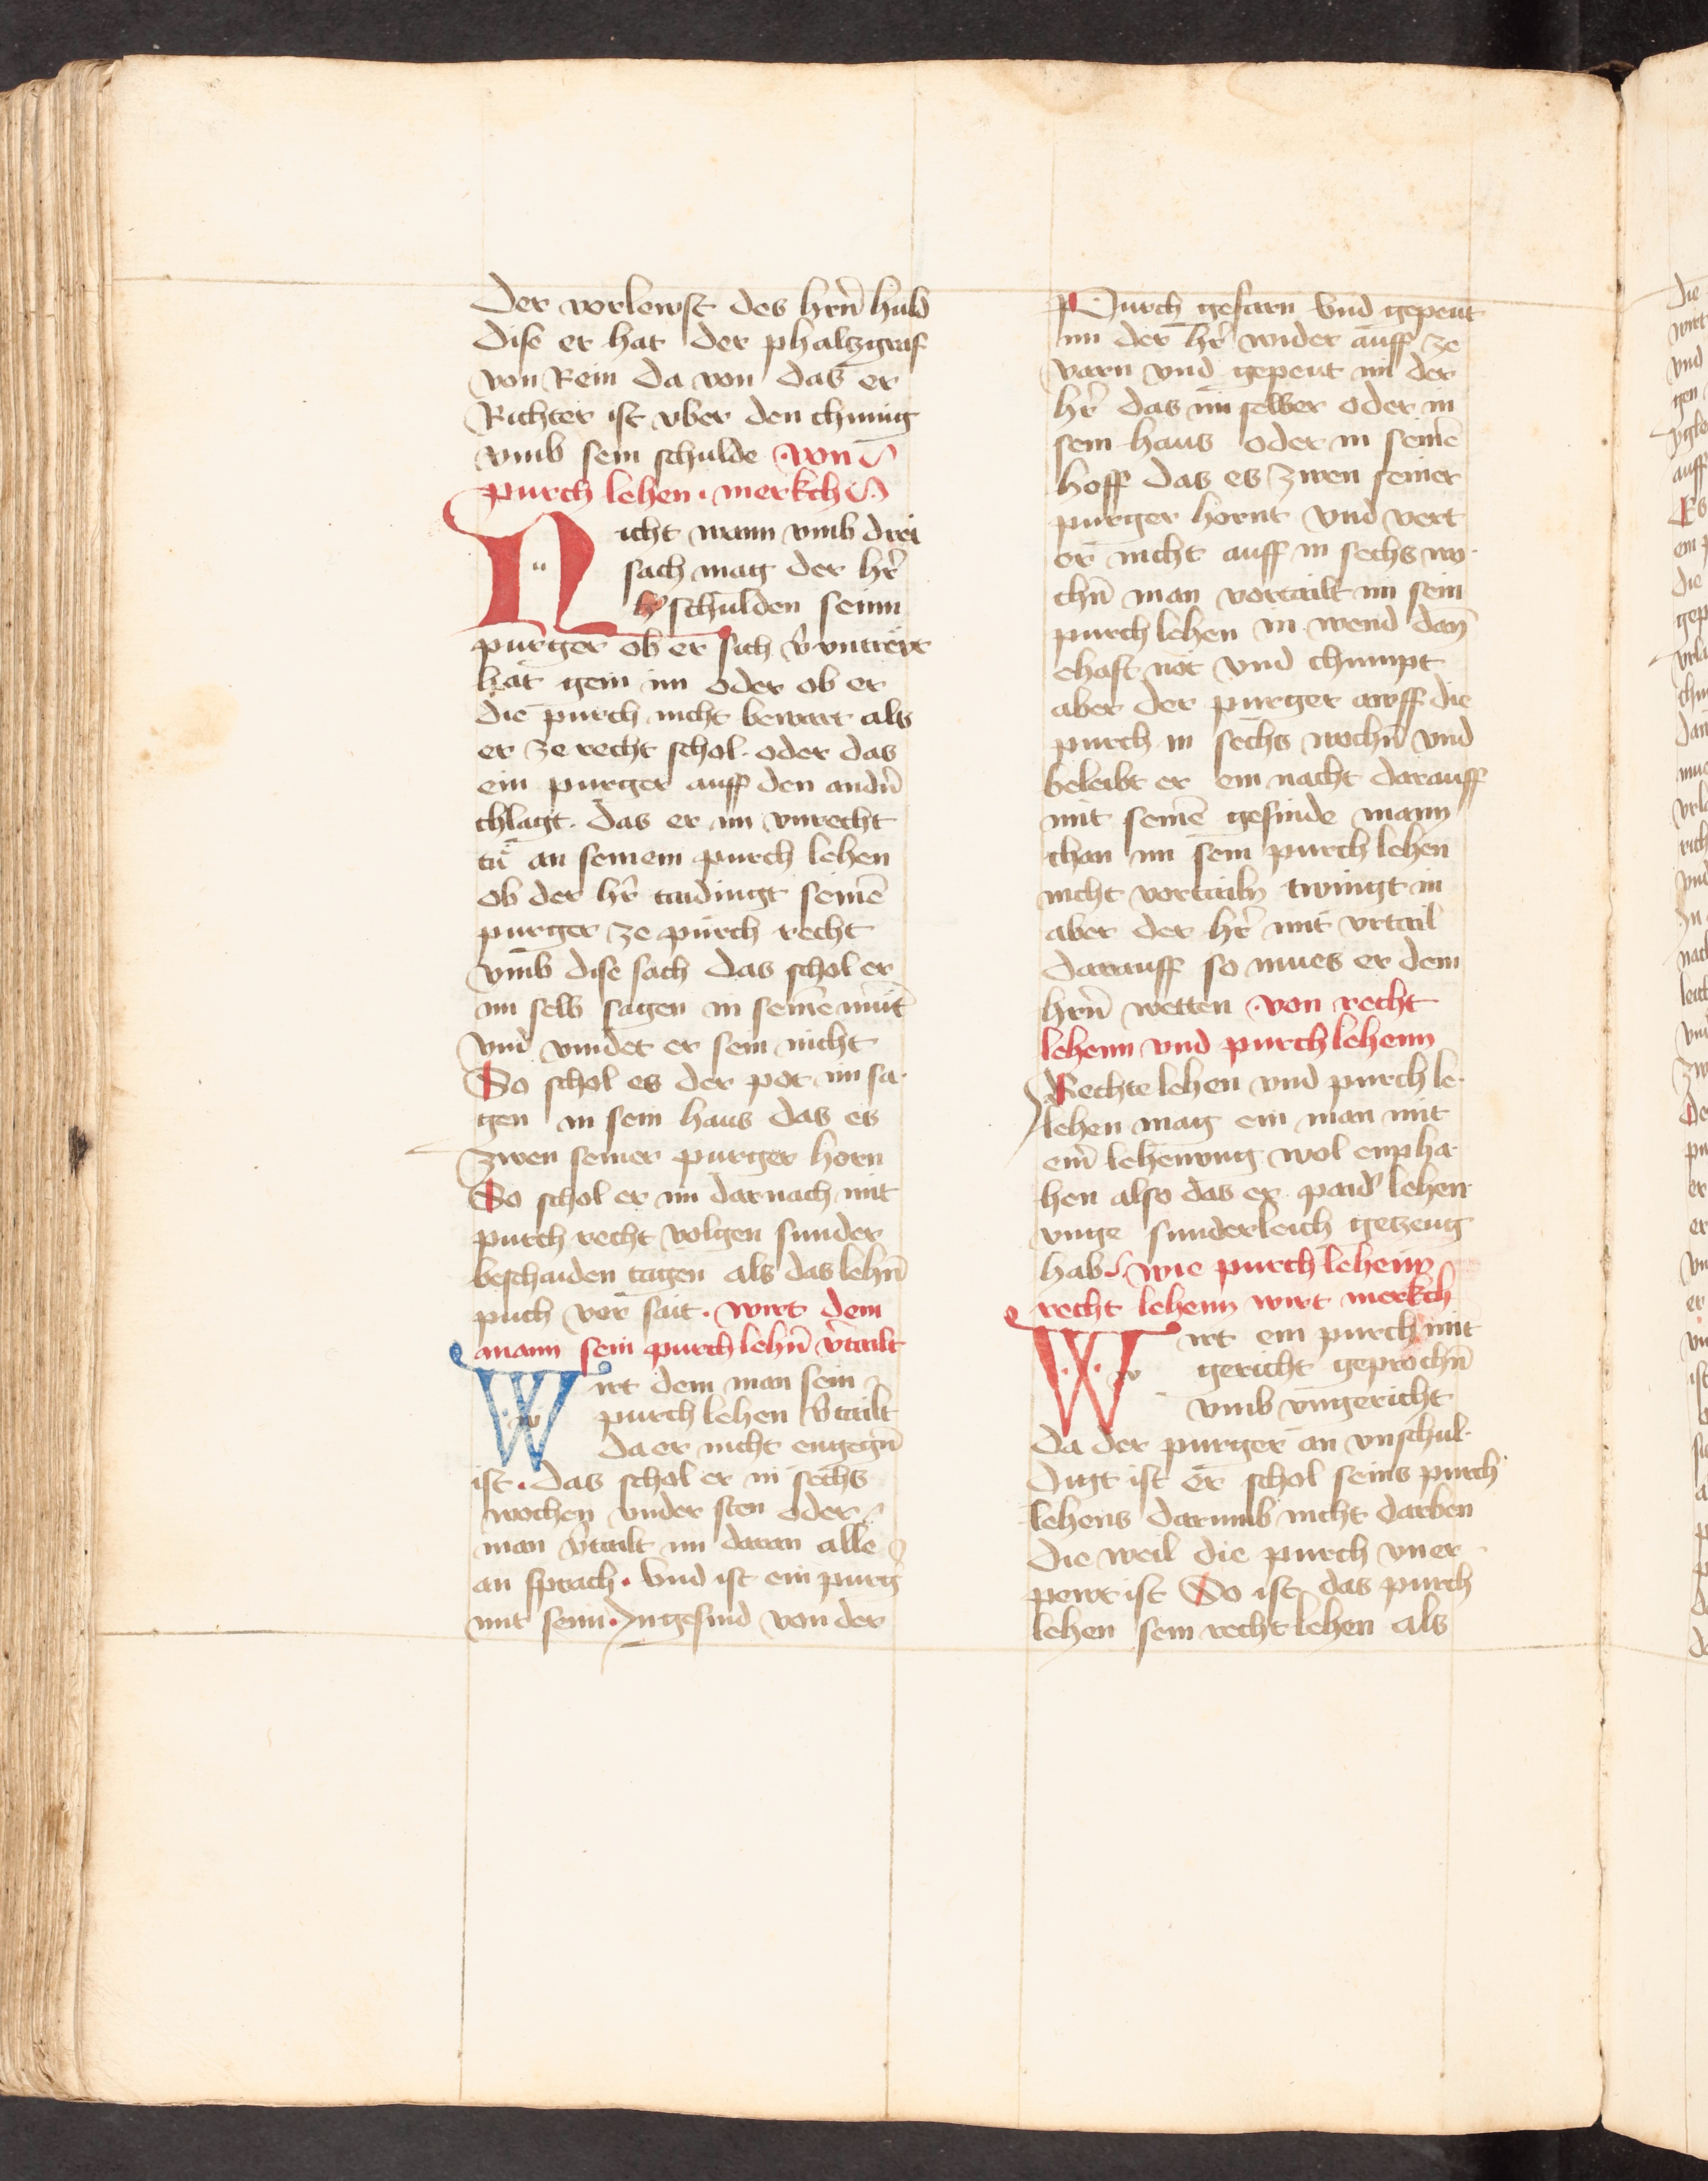 Der verlewst des hrn̄ huld
Dise er hat der phaltzgraf
von Rein da von das er
Richter ist vber den chunig
vmb sein schulde von
purch lehen · merkch
Nicht wann vmb drei
sach mag der hr̄
beschulden seinn
purger ob er sich v̄ untrewt
hat gein im oder ob er
die purch nicht bewart als
er ze recht schol · oder das
ein purger auff den andn̄
chlagt · das er im vnrecht
tů an seinem purch lehen
ob der hr̄ taidingt seinē
purger ze purch recht
vmb dise sach das schol er
im selb sagen in seinē mūt
vnd vindet er sein nicht
So schol es der pot im sa·
gen in sein haus das es
zwen seiner purger horn
So schol er im darnach mit
purch recht volgen sunder
beschaiden tagen als das lehn̄
puch vor sait · wirt dem
mann sein purch lehn̄ v̄tailt
Wirt dem man sein
purch lehen v̄tailt
da er nicht engegn̄
ist · das schol er in sechs
wochen vnder sten oder
man v̄tailt im daran alle
an sprach · Vnd ist ein purḡ
mit seim · Ingesind von der
Purch gefarn vnd gepeut
im der hr̄ wider auff ze
varn vnd gepeut im der
hr̄ das im selber oder in
sein haus oder in seinē
hoff das es zwen seiner
purger hornt vnd vert
er nicht auff in sechs wo·
chn̄ man vertailt im sein
purch lehen in wend dan̄
ehaft not vnd chumpt
aber der purger awff die
purch in sechs wochn̄ vnd
beleibt er ein nacht darauff
mit seinē gesinde mann
chan im sein purch lehen
nicht vertailn twingt in
aber der hr̄ mit vrtail
darauff so mues er dem
hrn̄ wetten · von recht
lehenn vnd purch lehenn
Rechte lehen vnd purch le·
lehen mag ein man mit
ein̄ lehenvng wol enpha·
hen also das er paid̕ lehen
vnge sunderleich getzeug
hab · wie purch lehenn
recht lehenn wirt merkch
Wirt ein purch mit
gericht geprochn̄
vmb vngericht
da der purger an vnschul·
digt ist er schol seins purch
lehens darumb nicht darben
die weil die purch vner
pewt ist So ist das purch
lehen sein recht lehen als